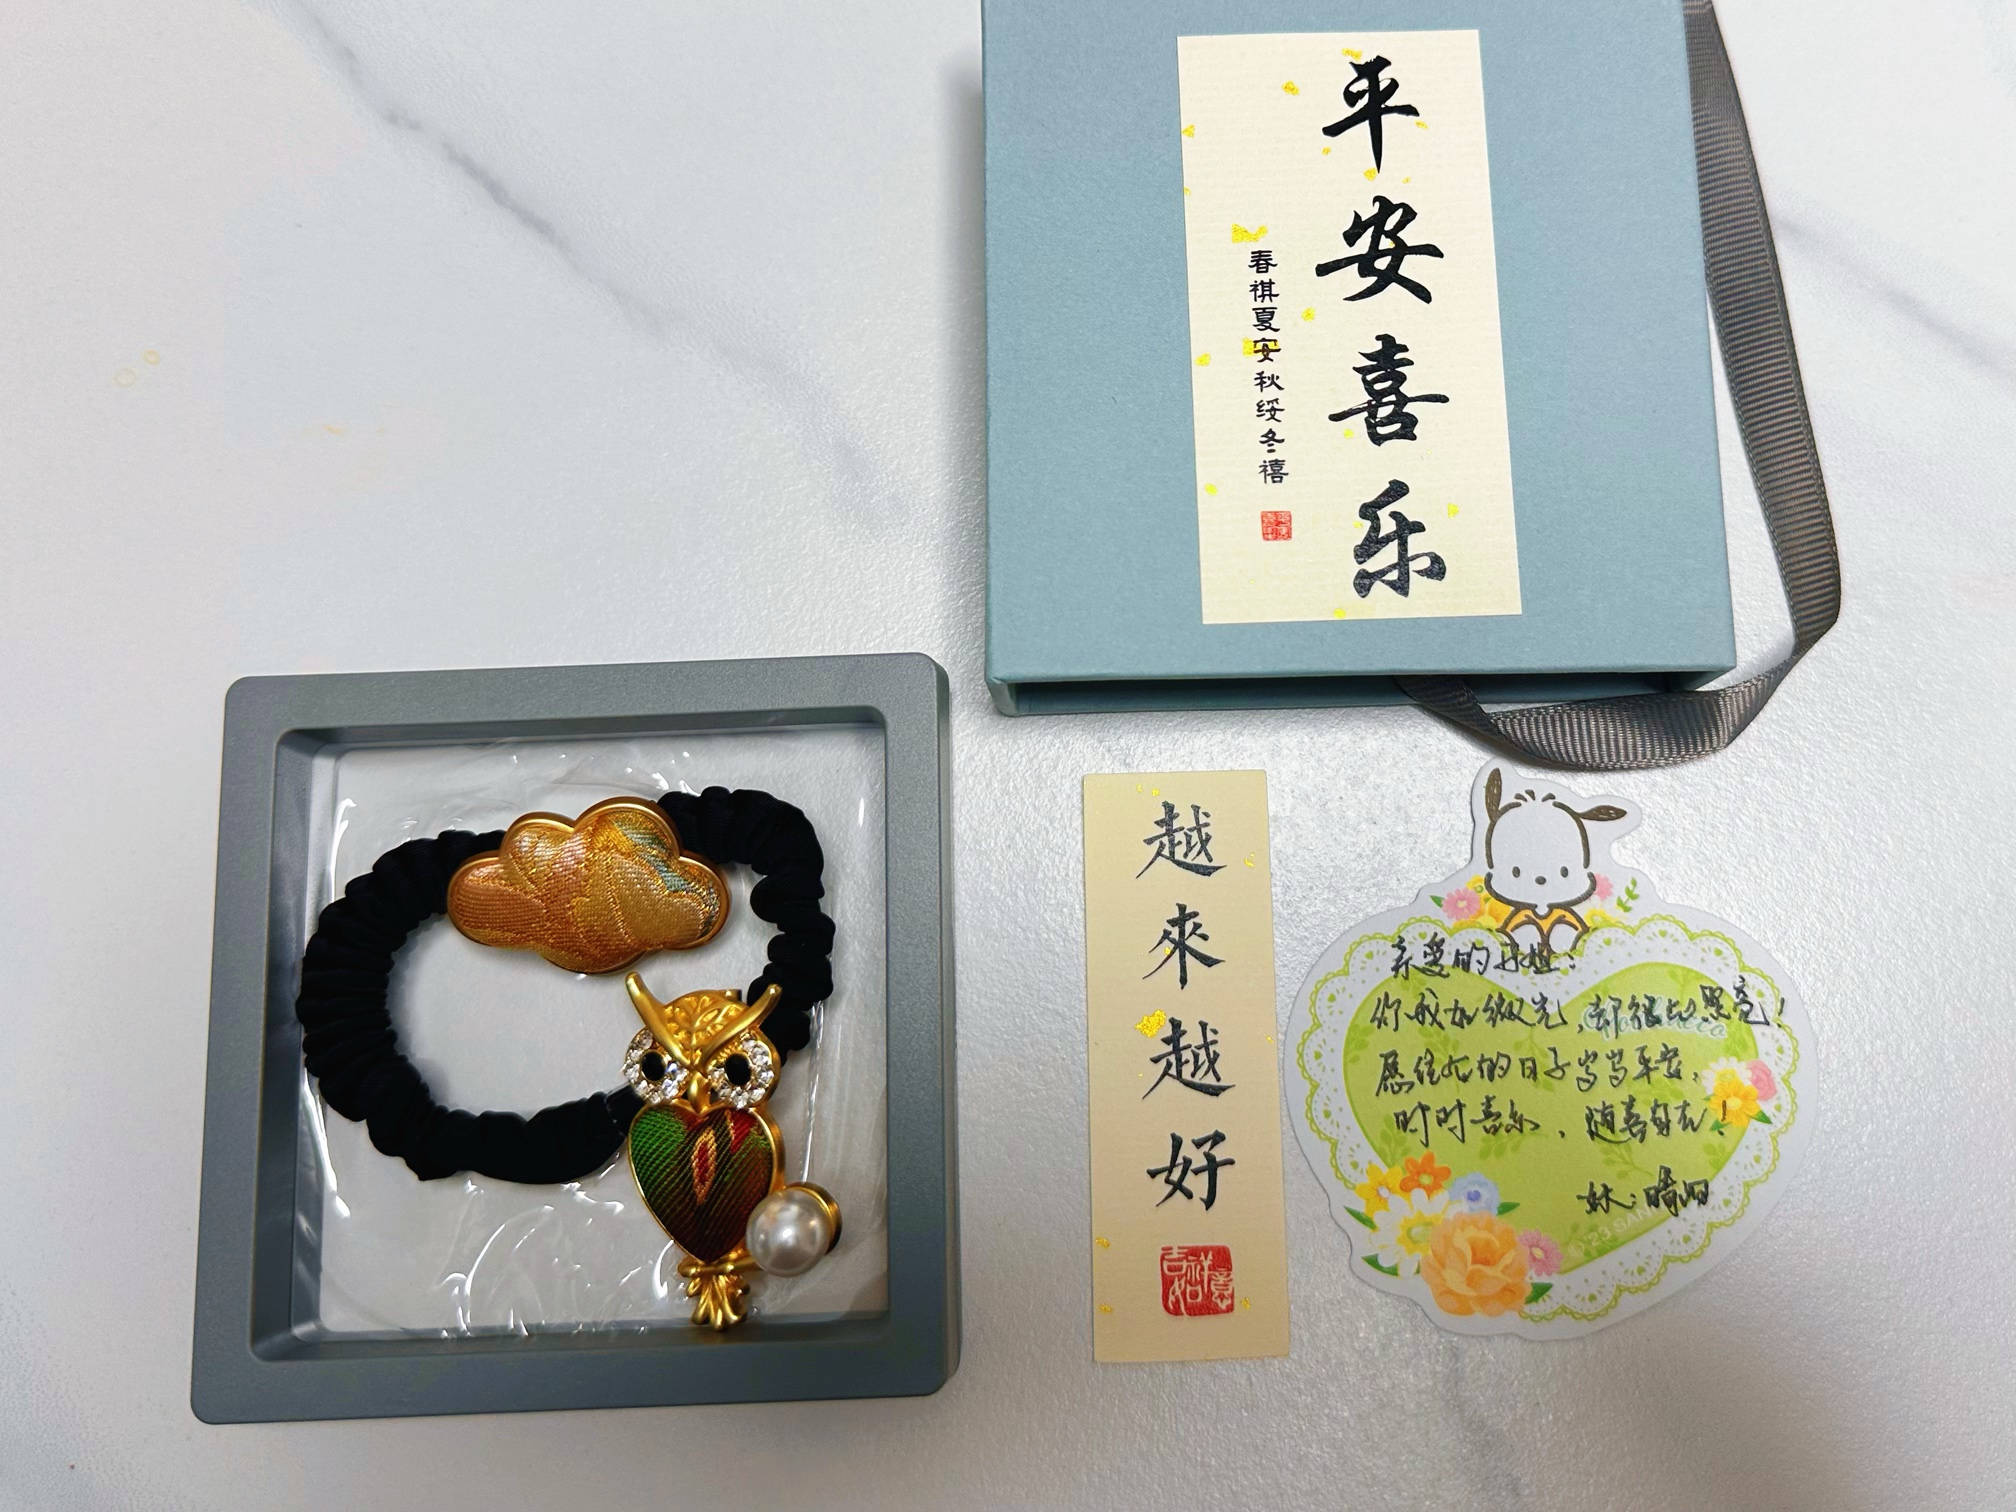 平安喜乐
春祺夏安秋绥冬禧
越來越好
吉祥如意
亲爱的
你我如微光,却彼此照亮!
愿往后的日子岁岁平安,
时时喜乐,随喜自在!
妹:晴